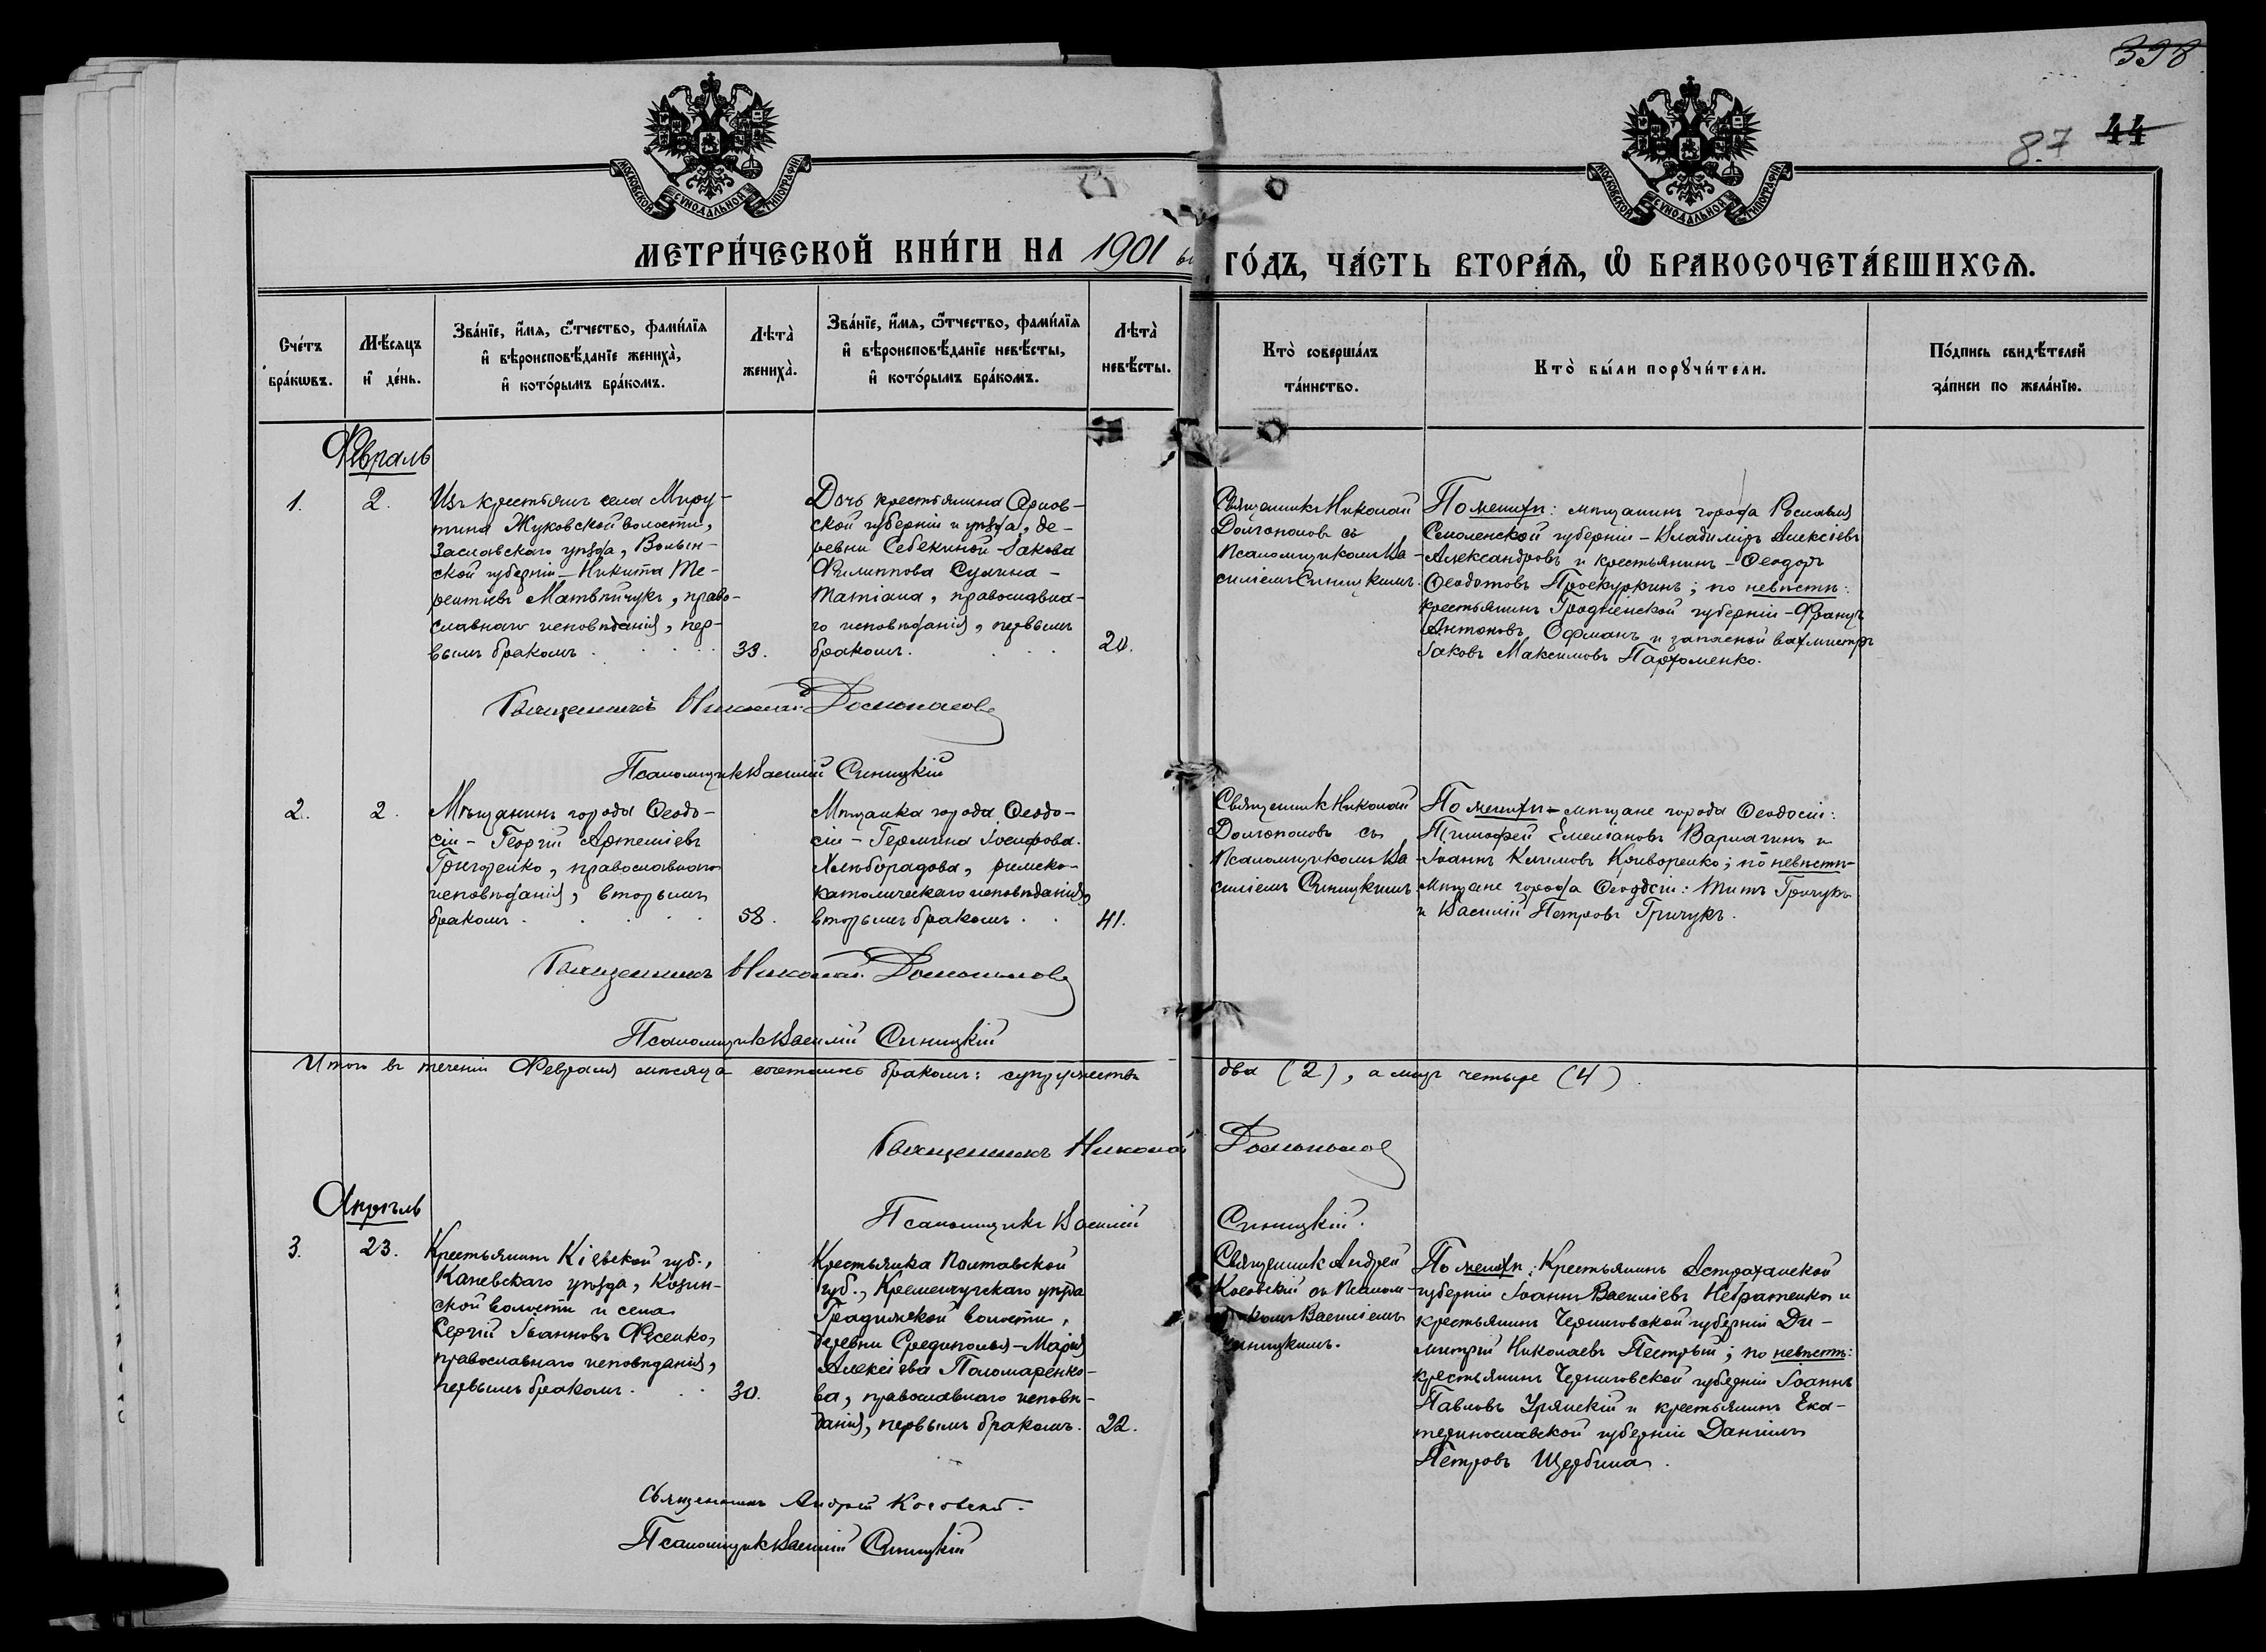 398
8.7 44
МОСКОВСКОЙ СѴНОДАЛЬНОЙ ТИПОГРАФІИ
МОСКОВСКОЙ СѴНОДАЛЬНОЙ ТИПОГРАФІИ
МЕТРИ́ЧЕСКОЙ КНИ́ГИ НА 1901 ГО́ДЪ, ЧА́СТЬ ВТОРА́Ѧ, Ѡ҆ БРАКОСОЧЕТА́ВШИХСѦ.
Сче́тъ бра́кѡвъ.
Мѣ́сяцъ и҆ де́нь.
Зва́нїе, и҆́мѧ, ѻ҆́тчество, фами́лїѧ
и҆ вѣроисповѣ́данїе жениха̀,
и҆ кото́рымъ бра́комъ.
Лѣта̀ жениха̀.
Зва́нїе, и҆́мѧ, ѻ҆́тчество, фами́лїѧ
и҆ вѣроисповѣ́данїе невѣ́сты,
и҆ кото́рымъ бра́комъ.
Лѣта̀ невѣ́сты.
Кто̀ соверша́лъ та́инство.
Кто̀ бы́ли порꙋчи́тели.
По́дпись свидѣ́телей за́писи по жела́нїю.
Февраль
1.
2.
Изъ крестьянъ села Миру-
тина Жуковской волости,
Заславскаго уѣзда, Волын-
ской губерніи - Никита Те-
рентіевъ Матвѣйчукъ, право-
славнаго исповѣданія, пер-
вымъ бракомъ
33.
Дочь крестьянина
ской губерніи и уѣзда, де-
ревни Себекиной Іакова
Филиппова Сулина -
Татіана, православна-
го исповѣданія, первымъ
бракомъ.
20.
Священникъ Николай
Долгополовъ съ
псаломщикомъ Ва-
силіемъ Синицкимъ.
По женихѣ: мѣщанинъ города Рославля
Смоленской губерніи - Владиміръ Алексіевъ
Александровъ и крестьянинъ - Ѳеодоръ
Ѳеодотовъ Проскуркинъ; по невѣстѣ:
крестьянинъ Гродненской губерніи - Францъ
Антоновъ Офманъ и запасной вахмистръ
Іаковъ Максимовъ Пархоменко.
Священникъ Николай Долгополовъ
Псаломщикъ Василій Синицкій
2.
2.
Мѣщанинъ города Ѳеодо-
сіи - Георгій Артеміевъ
Григоренко, православнаго
исповѣданія, вторымъ
бракомъ
58.
Мѣщанка города Ѳеодо-
сіи - Гермина Іосифова
Хлѣборадова, римско-
католическаго исповѣданія,
вторымъ бракомъ
41.
Священникъ Николай
Долгополовъ съ
псаломщикомъ Ва-
силіемъ Синицкимъ.
По женихѣ - мѣщане города Ѳеодосіи:
Тимофей Емеліановъ Вармагинъ и
Іоаннъ Климовъ Криворенко; по невѣстѣ -
мѣщане города Ѳеодосіи: Титъ Гричукъ
и Василій Петровъ Гричукъ.
Священникъ Николай Долгополовъ
Псаломщикъ Василій Синицкій
Итого въ теченіи Февраля мѣсяца сочеталось бракомъ: супружествъ два (2), а лицъ четыре (4).
Священникъ Николай Долгополовъ
Псаломщикъ Василій Синицкій.
Апрѣль
3.
23.
Крестьянинъ Кіевской губ.,
Каневскаго уѣзда, Козин-
ской волости и села
Сергій Іоанновъ Фесенко,
православнаго исповѣданія,
первымъ бракомъ.
30.
Крестьянка Полтавской
губ., Кременчугскаго уѣзда
Градижской волости,
деревни Срединолья - Марія
Алексіева Пономаренко-
ва, православнаго исповѣ-
данія, первымъ бракомъ.
22.
Священникъ Андрей
Косовскій съ псалом-
комъ Василіемъ
Синицкимъ.
По женихѣ: Крестьянинъ Астраханской
губерніи Іоаннъ Василіевъ Небратенко и
крестьянинъ Черниговской губерніи Ди-
митрій Николаевъ Пестрый; по невѣстѣ:
крестьянинъ Черниговской губерніи Іоаннъ
Павловъ Урянскій и крестьянинъ Ека-
теринославской губерніи Даніилъ
Петровъ Щербина.
Священникъ Андрей Косовскій.
Псаломщикъ Василій Синицкій